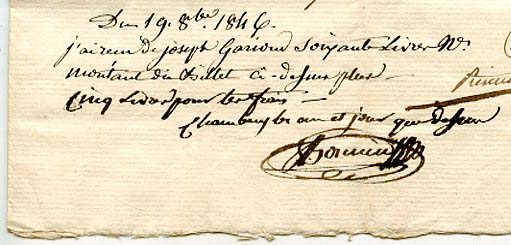 Du 19. 8bre 1846.
j'ai reçu de joseph Garioud Soixante Livres Nes
montant du Billet ci-dessus plus
Cinq Livres pour les frais
Chambery les an et jour que dessus